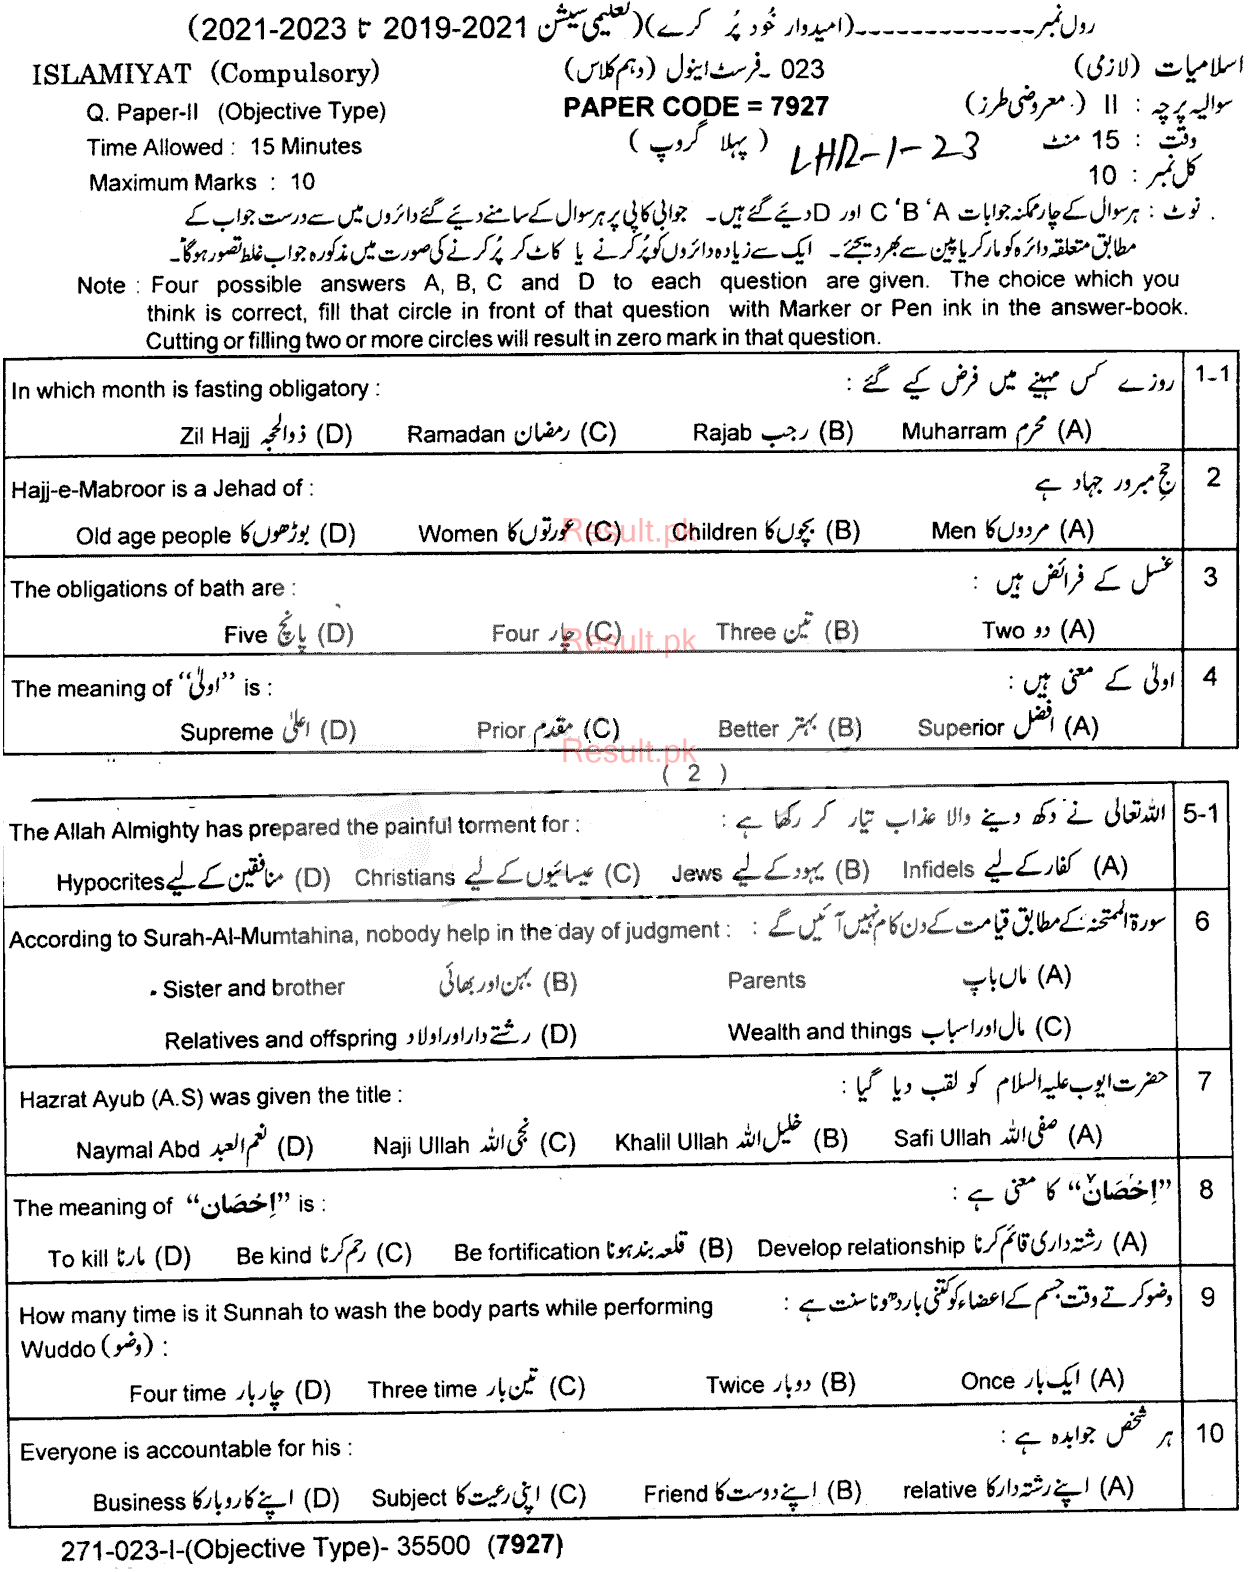 رول نمبر--------------(امیدوار خُود پُر کرے)(تعلیمی سیشن 2021-2019 تا 2023-2021)
اسلامیات (لازمی) 023 ـ فرسٹ اینول (دہم کلاس) ISLAMIYAT (Compulsory)
سوالیہ پرچہ : II (معروضی طرز) PAPER CODE = 7927 Q. Paper-II (Objective Type)
وقت : 15 منٹ LHR-1-23 (پہلا گروپ) Time Allowed : 15 Minutes
کل نمبر : 10 Maximum Marks : 10
نوٹ : ہر سوال کے چار ممکنہ جوابات A ' B ' C اور D دیئے گئے ہیں۔ جوابی کاپی پر ہر سوال کے سامنے دیئے گئے دائروں میں سے درست جواب کے
مطابق متعلقہ دائرہ کو مارکر یا پین سے بھر دیجئے۔ ایک سے زیادہ دائروں کو پُر کرنے یا کاٹ کر پُر کرنے کی صورت میں مذکورہ جواب غلط تصور ہوگا۔
Note : Four possible answers A, B, C and D to each question are given. The choice which you
think is correct, fill that circle in front of that question with Marker or Pen ink in the answer-book.
Cutting or filling two or more circles will result in zero mark in that question.
In which month is fasting obligatory : روزے کس مہینے میں فرض کیے گئے : 1-1
Zil Hajj ذوالحجہ (D) Ramadan رمضان (C) Rajab رجب (B) Muharram محرم (A)
Hajj-e-Mabroor is a Jehad of : حجِ مبرور جہاد ہے 2
Old age people بوڑھوں کا (D) Women عورتوں کا (C) Children بچوں کا (B) Men مردوں کا (A)
Result.pk
The obligations of bath are : غسل کے فرائض ہیں : 3
Five پانچ (D) Four چار (C) Three تین (B) Two دو (A)
Result.pk
The meaning of “اولیٰ” is : اولیٰ کے معنی ہیں : 4
Supreme اعلیٰ (D) Prior مقدم (C) Better بہتر (B) Superior افضل (A)
Result.pk
( 2 )
The Allah Almighty has prepared the painful torment for : اللہ تعالیٰ نے دکھ دینے والا عذاب تیار کر رکھا ہے : 5-1
Hypocrites منافقین کے لیے (D) Christians عیسائیوں کے لیے (C) Jews یہود کے لیے (B) Infidels کفار کے لیے (A)
According to Surah-Al-Mumtahina, nobody help in the day of judgment : سورۃ الممتحنہ کے مطابق قیامت کے دن کام نہیں آئیں گے : 6
Sister and brother بہن اور بھائی (B) Parents ماں باپ (A)
Relatives and offspring رشتے دار اور اولاد (D) Wealth and things مال اور اسباب (C)
Hazrat Ayub (A.S) was given the title : حضرت ایوب علیہ السلام کو لقب دیا گیا : 7
Naymal Abd نعم العبد (D) Naji Ullah نجی اللہ (C) Khalil Ullah خلیل اللہ (B) Safi Ullah صفی اللہ (A)
The meaning of “اِحْصَان” is : “اِحْصَان” کا معنی ہے : 8
To kill مارنا (D) Be kind رحم کرنا (C) Be fortification قلعہ بند ہونا (B) Develop relationship رشتہ داری قائم کرنا (A)
How many time is it Sunnah to wash the body parts while performing وضو کرتے وقت جسم کے اعضاء کو کتنی بار دھونا سنت ہے : 9
Wuddo (وضو) :
Four time چار بار (D) Three time تین بار (C) Twice دو بار (B) Once ایک بار (A)
Everyone is accountable for his : ہر شخص جوابدہ ہے : 10
Business اپنے کاروبار کا (D) Subject اپنی رعیت کا (C) Friend اپنے دوست کا (B) relative اپنے رشتہ دار کا (A)
271-023-I-(Objective Type)- 35500 (7927)